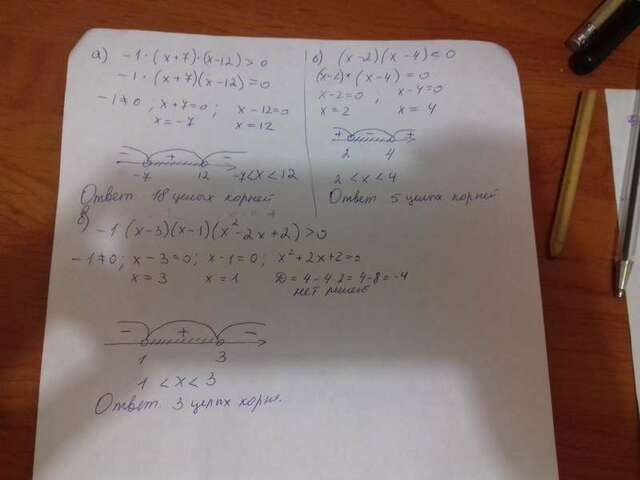 а) -1·(x+7)·(x-12) > 0
-1·(x+7)(x-12) = 0
-1≠0, x+7=0; x-12=0
x=-7; x=12
- + -
-7 12 -7<x<12
Ответ 18 целых корней
б) (x-2)(x-4) < 0
(x-2)*(x-4) = 0
x-2=0, x-4=0
x=2 x=4
+ - +
2 4
2<x<4
Ответ 5 целых корней
в) -1(x-3)(x-1)(x²-2x+2)>0
-1≠0; x-3=0; x-1=0; x²+2x+2=0
x=3 x=1 D=4-4·2=4-8=-4
нет решений
- + -
1 3
1<x<3
Ответ 3 целых корн.